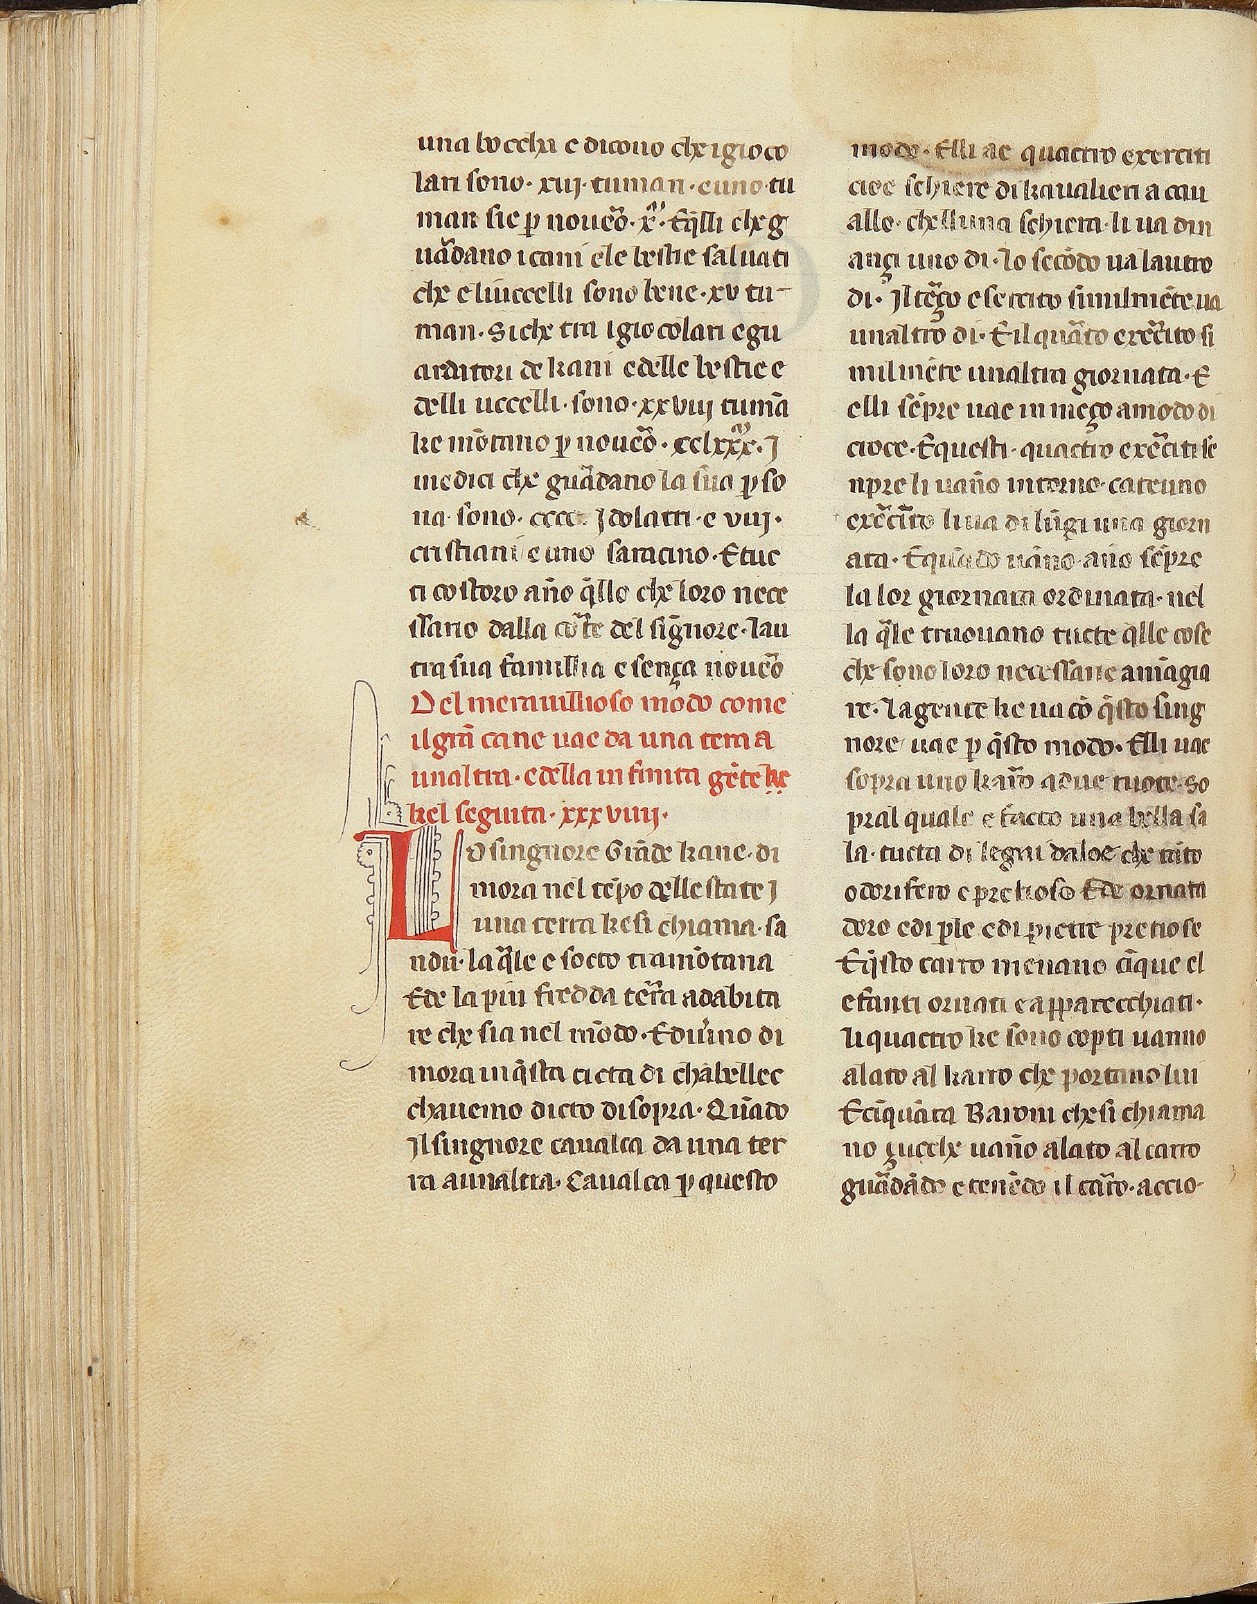 una boccha e dicono che i gioco
lari sono· xiij· tuman· e uno tu
man sie p noueõ· x̃· E q̃lli che g
uãdano i cani e le bestie saluati
che e liuccelli sono bene· xv tu-
man· Si che tra i giocolari e gu
arditori de kani e delle bestie e
delli uccelli· sono· xxviij tumã
ke mõtano p noueõ· cclxxx· J
medici che guãdano la sua pso
na sono· cccc· Jdolatri· e viij·
cristiani e uno saracino· E tuc
ti costoro ãno q̃llo che loro nece
ssario dalla cõte del signore· lau
tra sua famillia e sença noueõ
Del merauillioso mõdo come
il grã cane uae da una terra
unaltra· e della infinita gẽte ke
kel seguita· xxxviiij·
Lo singnore Grãde kane· di
mora nel tẽpo delle state J
una terra ke si chiama· sa
ndu· la q̃le e socto tramõtana
Ed e la piu fredda tẽra adabita
re che sia nel mõdo· E diũno di
mora in q̃sta cicta di chãbellec
chauemo dicto di sopra· Quãdo
Jl singnore caualca da una ter
ra aunaltra· Caualca p questo
modo· Elli ae quactro exerciti
cioe schiere di kaualieri a cau
allo· chelluna schiera· li ua din
ançi uno di· lo secõdo ua lautro
di· Jl tẽço esercito similmẽte ua
unaltro di· E il quãto exẽcito si
milmẽte unaltra giornata· E
elli sẽpre uae in meço a modo di
cioce· E questi· quactro exẽciti se
npre li uãno intorno· cateuno
exẽcito li ua di lũgi una giorn
ata· E quãdo uãno· ãno sẽpre
la lor giornata ordinata· nel
la q̃le truouano tucte q̃lle cose
che sono loro necessarie a mãgia
re· La gente ke ua cõ q̃sto sing
nore uae p q̃sto modo· Elli uae
sopra uno kaño a due ruote· so
pral quale e facto una bella sa
la· tucta di legni daloe che tãto
odorifero e pretioso Ed e ornata
doro e di ple e di pietre pretiose
E q̃sto carro menano cĩque el
efanti ornati e apparecchiati·
li quactro ke sono copti uanno
alato al karro che portano lui
E cĩquãta Baroni che si chiama
no çucche uãno alato al carro
guãdãdo e tenẽdo il cãro· accio-